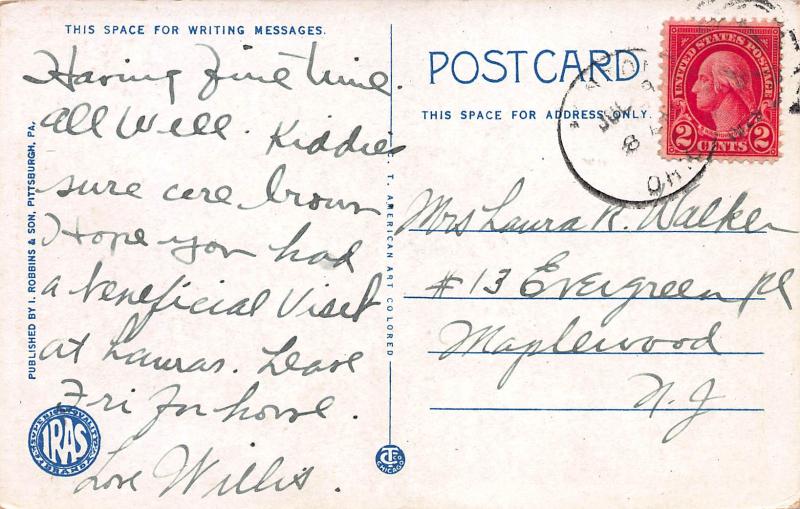 THIS SPACE FOR WRITING MESSAGES.
Having fine time.
all well. Kiddies
sure are brown
Hope you had
a beneficial visit
at Lauras. Leave
Fri for home.
Love Willis.
PUBLISHED BY I. ROBBINS & SON, PITTSBURGH, PA.
IRAS
C. T. AMERICAN ART COLORED
CHICAGO
POST CARD
THIS SPACE FOR ADDRESS ONLY.
UNITED STATES POSTAGE
2 CENTS 2
JUL
8
OHIO
Mrs Laura R. Walker
#13 Evergreen Pl
Maplewood
N. J